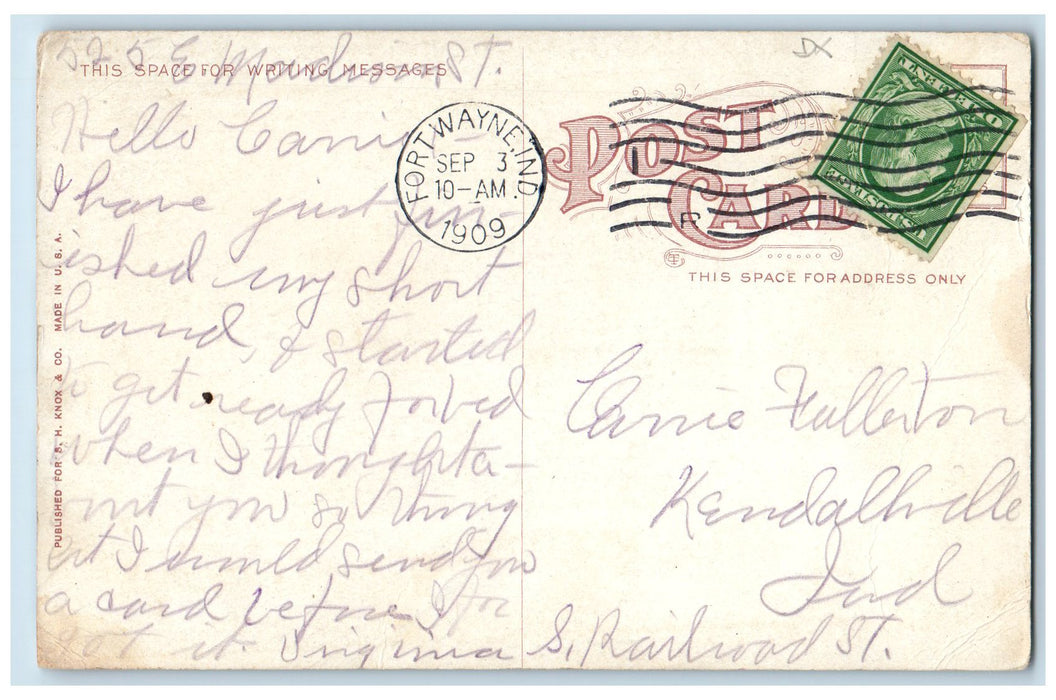 525 E Madison St.
THIS SPACE FOR WRITING MESSAGES
Hello Carrie
I have just fin-
ished my short
hand, & started
to get ready for bed
when I thought a-
out you so thong
ht I would send you
a card before I for
got it. Virginia
PUBLISHED FOR S. H. KNOX & CO. MADE IN U. S. A.
FORT WAYNE, IND.
SEP 3
10-AM
1909
POST
CARD
THIS SPACE FOR ADDRESS ONLY
Carrie Fullerton
Kendallville
Ind
S. Railroad St.